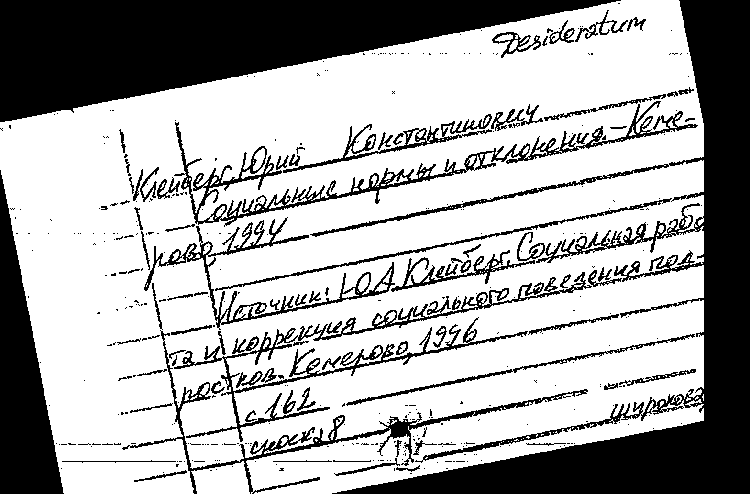 Desideratum
Клейберг, Юрий Константинович
Социальные нормы и отклонения. – Кеме-
рово, 1994
Источник: Ю.А. Клейберг. Социальная рабо
та и коррекция социального поведения под-
ростков. Кемерово, 1996
с. 162
сноска 8
Широкова